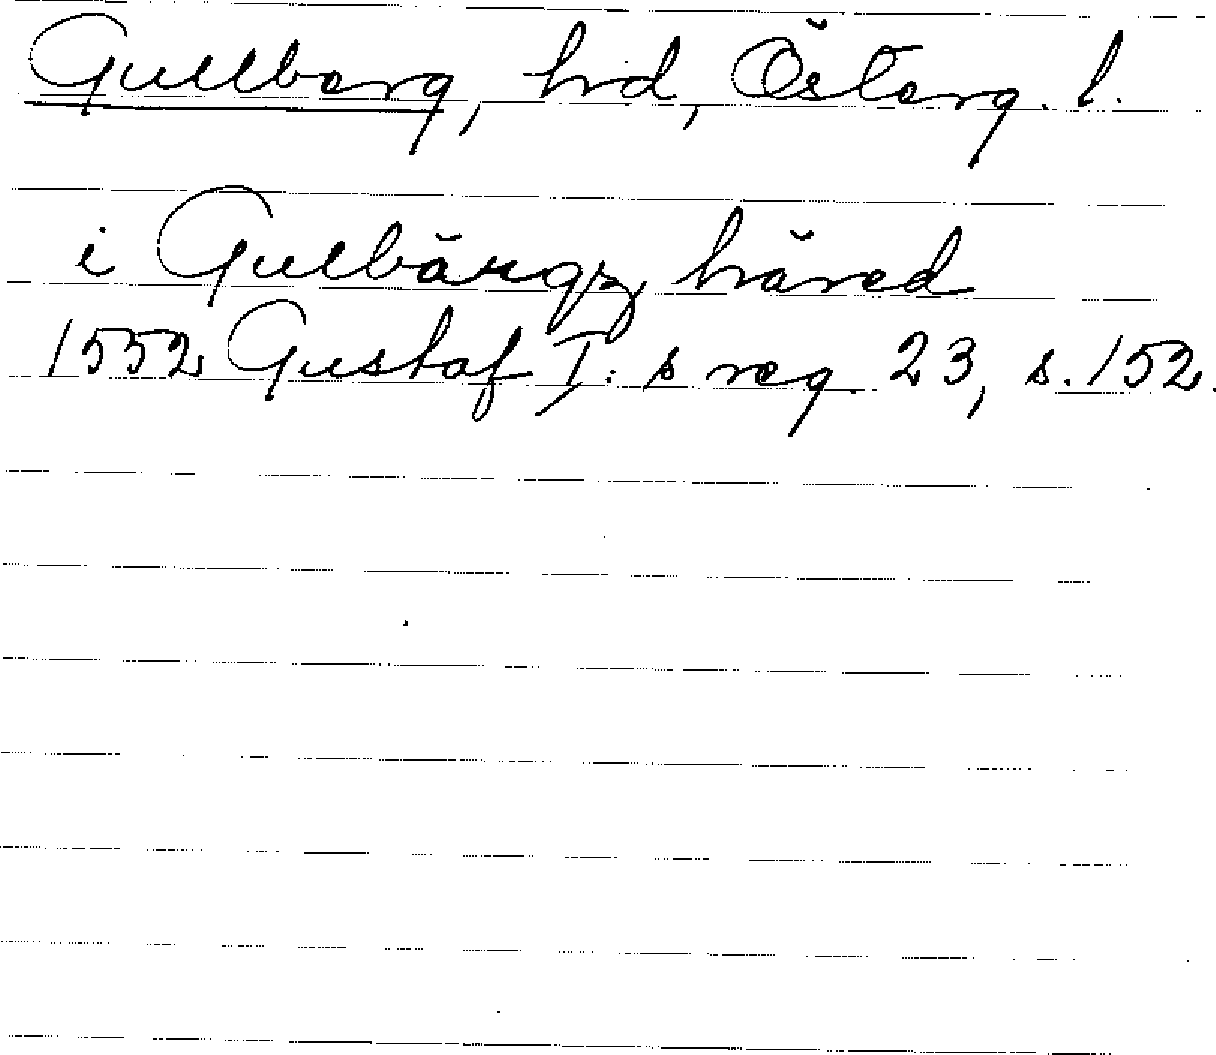 Gullberg, hd, Österg. l.
i Gulbärgz häred
1552 Gustaf I:s reg. 23, s. 152.